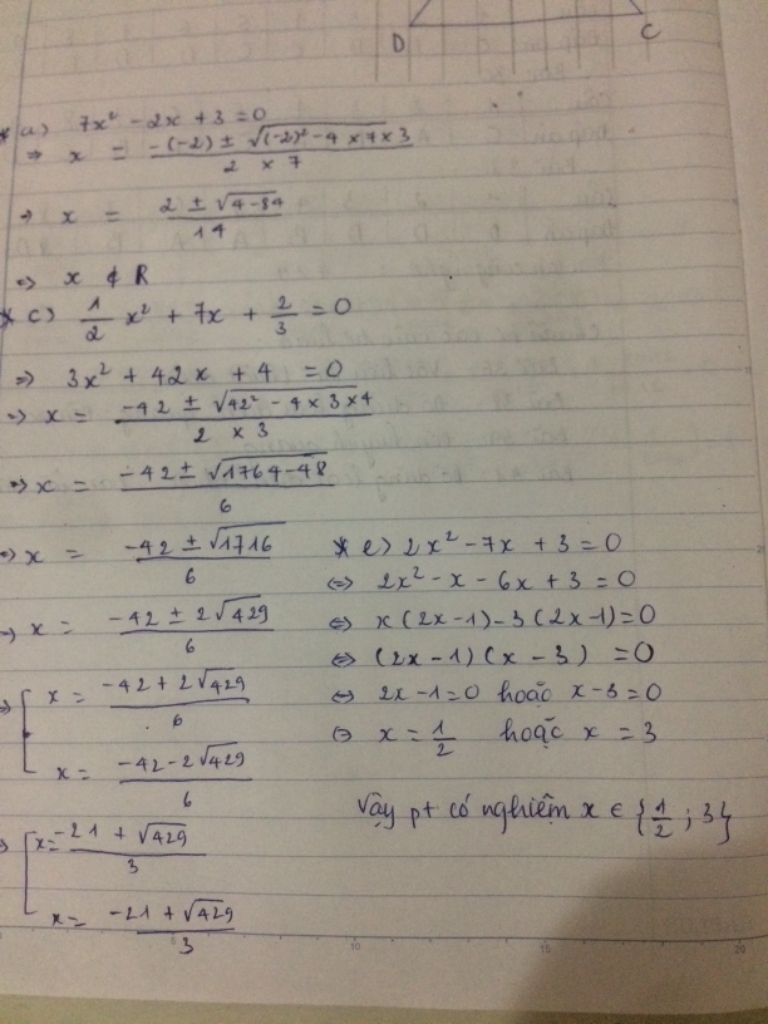 D C
* a) 7x² - 2x + 3 = 0
=> x = (-(-2) ± √((-2)² - 4 x 7 x 3)) / (2 x 7)
=> x = (2 ± √(4-84)) / 14
=> x ∉ R
* c) 1/2 x² + 7x + 2/3 = 0
=> 3x² + 42x + 4 = 0
=> x = (-42 ± √(42² - 4 x 3 x 4)) / (2 x 3)
=> x = (-42 ± √(1764-48)) / 6
=> x = (-42 ± √1716) / 6
=> x = (-42 ± 2√429) / 6
=> [ x = (-42 + 2√429) / 6
x = (-42 - 2√429) / 6
=> [ x = (-21 + √429) / 3
x = (-21 + √429) / 3
* e) 2x² - 7x + 3 = 0
<=> 2x² - x - 6x + 3 = 0
<=> x(2x-1) - 3(2x-1) = 0
<=> (2x-1)(x-3) = 0
<=> 2x-1=0 hoặc x-3=0
<=> x = 1/2 hoặc x = 3
Vậy pt có nghiệm x ∈ {1/2 ; 3}
10 15 20